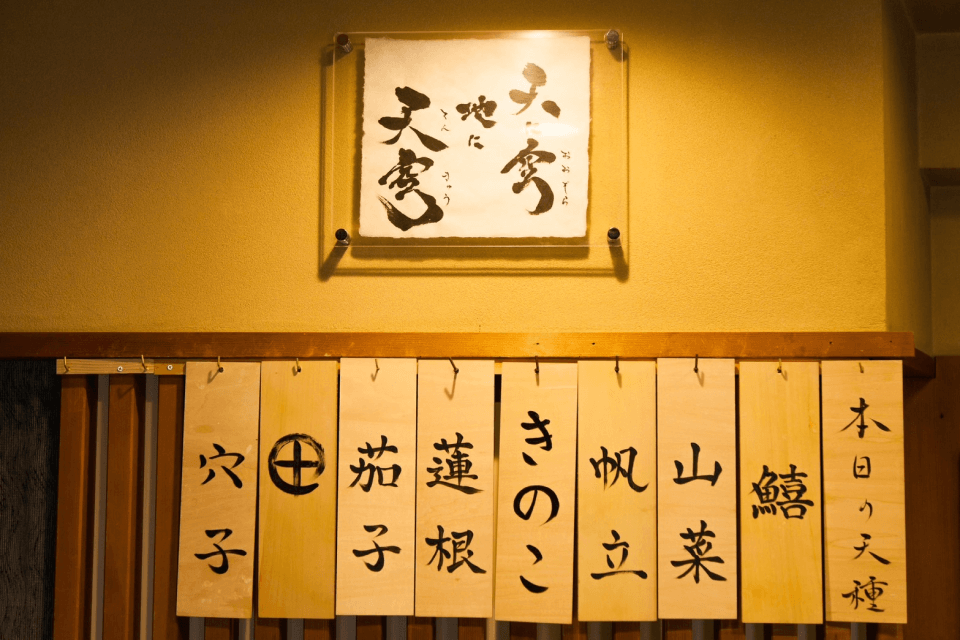 天に穹
おおぞら
地に
天穹
てん
きゅう
本日の天種
鱚
山菜
帆立
きのこ
蓮根
茄子
⊕
穴子